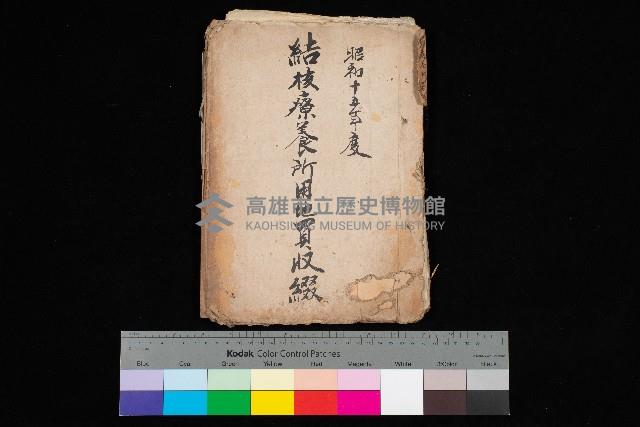 昭和十五年度
結核療養所用地買収綴
高雄市立歷史博物館
KAOHSIUNG MUSEUM OF HISTORY
Kodak Color Control Patches
Blue Cyan Green Yellow Red Magenta White 3/Color Black